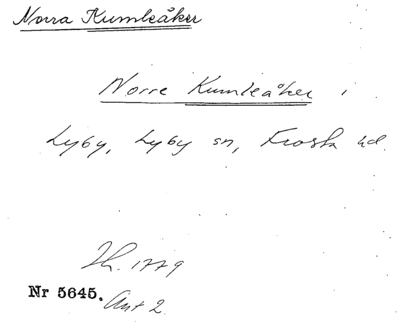 Norra Kumleåker
Norre Kumleåker i
Lyby, Lyby sn, Frosta hd.
Lh. 1779
Nr 5645. Akt 2.